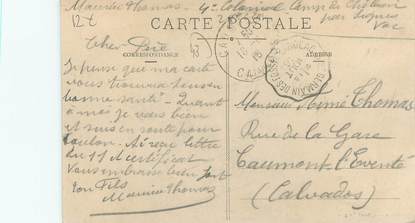 Maurice Thomas - 4e Colonial Camp de Chalucet
12t
par Signes
Var
CARTE POSTALE
CORRESPONDANCE
ADRESSE
Cher Père
Je pense que ma carte
vous trouvera tous en
bonne santé - Quant
à moi je vais bien
et suis en route pour
Toulon. Ai reçu lettre
du 11 et certificat
Vous embrasse bien fort
ton Fils
Maurice Thomas
Monsieur Aimé Thomas
Rue de la Gare
Caumont l'Eventé
(Calvados)